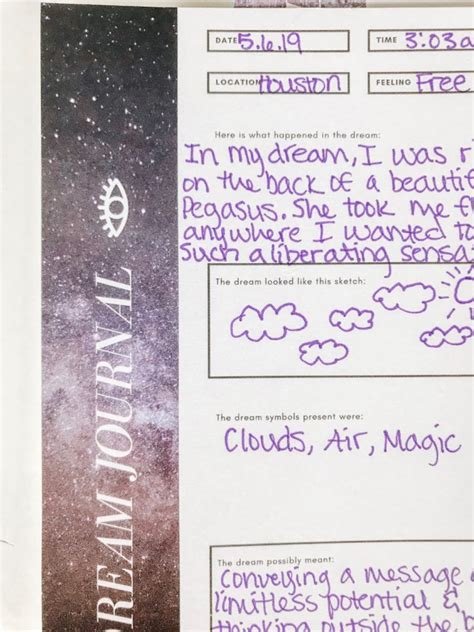 DREAM JOURNAL
DATE 5.6.19
TIME 3:03a
LOCATION Houston
FEELING Free
Here is what happened in the dream:
In my dream, I was r
on the back of a beautif
Pegasus. She took me f
anywhere I wanted to
such a liberating sensa
The dream looked like this sketch:
The dream symbols present were:
Clouds, Air, Magic
The dream possibly meant:
Conveying a message
limitless potential &
thinking outside the